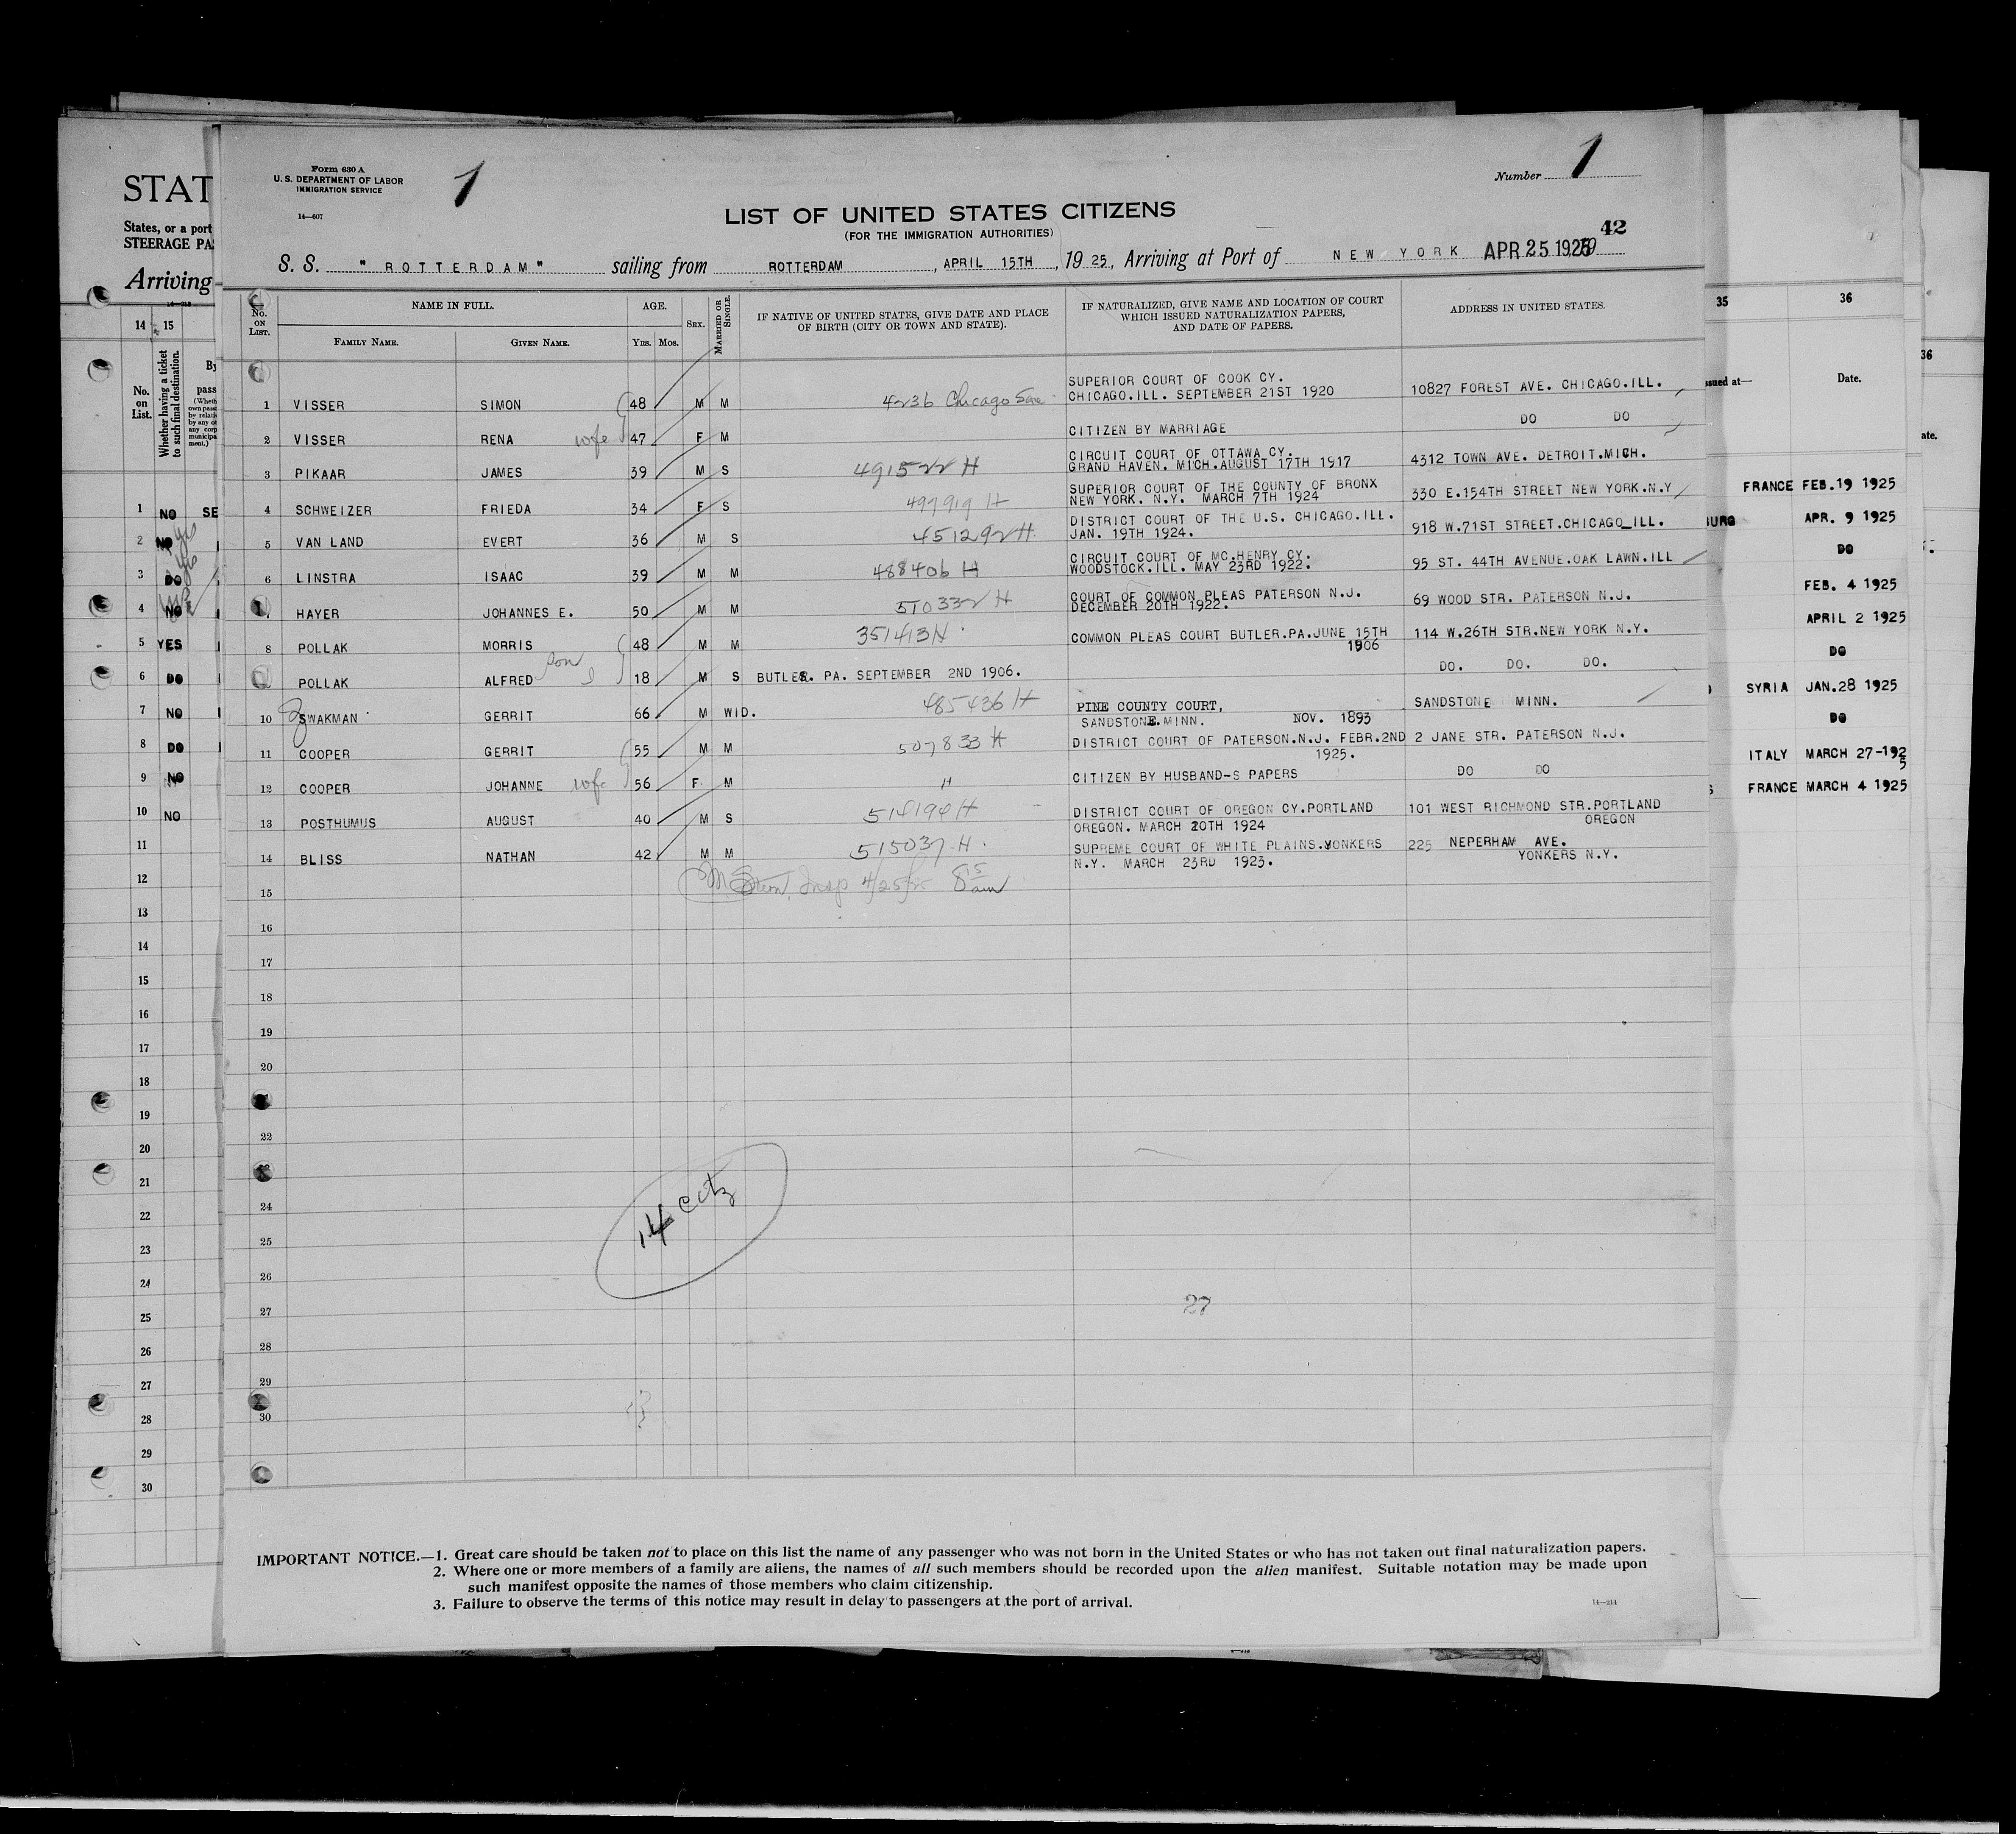 Form 630 A
U. S. DEPARTMENT OF LABOR
IMMIGRATION SERVICE
14—607
1
Number 1
LIST OF UNITED STATES CITIZENS
(FOR THE IMMIGRATION AUTHORITIES)
42
S. S. "ROTTERDAM" sailing from ROTTERDAM, APRIL 15TH, 1925, Arriving at Port of NEW YORK APR 25 1925 19
No. ON LIST. NAME IN FULL. AGE. SEX. MARRIED OR SINGLE. IF NATIVE OF UNITED STATES, GIVE DATE AND PLACE OF BIRTH (CITY OR TOWN AND STATE). IF NATURALIZED, GIVE NAME AND LOCATION OF COURT WHICH ISSUED NATURALIZATION PAPERS, AND DATE OF PAPERS. ADDRESS IN UNITED STATES.
FAMILY NAME. GIVEN NAME. YRS. MOS.
1 VISSER SIMON 48 M M 4236 Chicago SUPERIOR COURT OF COOK CY. CHICAGO.ILL. SEPTEMBER 21ST 1920 10827 FOREST AVE. CHICAGO.ILL.
2 VISSER RENA wife 47 F M CITIZEN BY MARRIAGE DO DO
3 PIKAAR JAMES 39 M S 491522 H CIRCUIT COURT OF OTTAWA CY. GRAND HAVEN. MICH.AUGUST 17TH 1917 4312 TOWN AVE. DETROIT.MICH.
4 SCHWEIZER FRIEDA 34 F S 497919 H SUPERIOR COURT OF THE COUNTY OF BRONX NEW YORK. N.Y. MARCH 7TH 1924 330 E.154TH STREET NEW YORK.N.Y
5 VAN LAND EVERT 36 M S 451292 H DISTRICT COURT OF THE U.S. CHICAGO.ILL. JAN. 19TH 1924. 918 W.71ST STREET.CHICAGO ILL.
6 LINSTRA ISAAC 39 M M 488406 H CIRCUIT COURT OF MC.HENRY CY. WOODSTOCK.ILL. MAY 23RD 1922. 95 ST. 44TH AVENUE.OAK LAWN.ILL
HAYER JOHANNES E. 50 M M 510332 H COURT OF COMMON PLEAS PATERSON N.J. DECEMBER 20TH 1922. 69 WOOD STR. PATERSON N.J.
8 POLLAK MORRIS 48 M M 351413 H COMMON PLEAS COURT BUTLER.PA.JUNE 15TH 1906 114 W.26TH STR.NEW YORK N.Y.
POLLAK ALFRED son 18 M S BUTLER. PA. SEPTEMBER 2ND 1906. DO. DO. DO.
10 SWAKMAN GERRIT 66 M WID. 485436 H PINE COUNTY COURT, SANDSTONE.MINN. NOV. 1893 SANDSTONE MINN.
11 COOPER GERRIT 55 M M 507833 H DISTRICT COURT OF PATERSON.N.J. FEBR.2ND 1925. 2 JANE STR. PATERSON N.J.
12 COOPER JOHANNE wife 56 F M H CITIZEN BY HUSBAND-S PAPERS DO DO
13 POSTHUMUS AUGUST 40 M S 514194 H DISTRICT COURT OF OREGON CY.PORTLAND OREGON. MARCH 20TH 1924 101 WEST RICHMOND STR.PORTLAND OREGON
14 BLISS NATHAN 42 M M 515037 H. SUPREME COURT OF WHITE PLAINS.YONKERS N.Y. MARCH 23RD 1923. 225 NEPERHAM AVE. YONKERS N.Y.
15 Insp 4/25/25 8 15 am
16
17
18
19
20
22
24
25
26
27
28
29
30
14 citz
27
IMPORTANT NOTICE.—1. Great care should be taken not to place on this list the name of any passenger who was not born in the United States or who has not taken out final naturalization papers.
2. Where one or more members of a family are aliens, the names of all such members should be recorded upon the alien manifest. Suitable notation may be made upon
such manifest opposite the names of those members who claim citizenship.
3. Failure to observe the terms of this notice may result in delay to passengers at the port of arrival.
14—214
STAT
States, or a port
STEERAGE PA
Arriving
14 15
No. on List. Whether having a ticket to such final destination.
1 NO SE
2 NO yes
3 DO yes
4 NO
5 YES
6 DO
7 NO
8 DO
9 NO
10 NO
11
12
13
14
15
16
17
18
19
20
21
22
23
24
25
26
27
28
29
30
35 36
ssued at— Date.
FRANCE FEB.19 1925
BURG APR. 9 1925
DO
FEB. 4 1925
APRIL 2 1925
DO
SYRIA JAN.28 1925
DO
ITALY MARCH 27-1925
FRANCE MARCH 4 1925
36
ate.